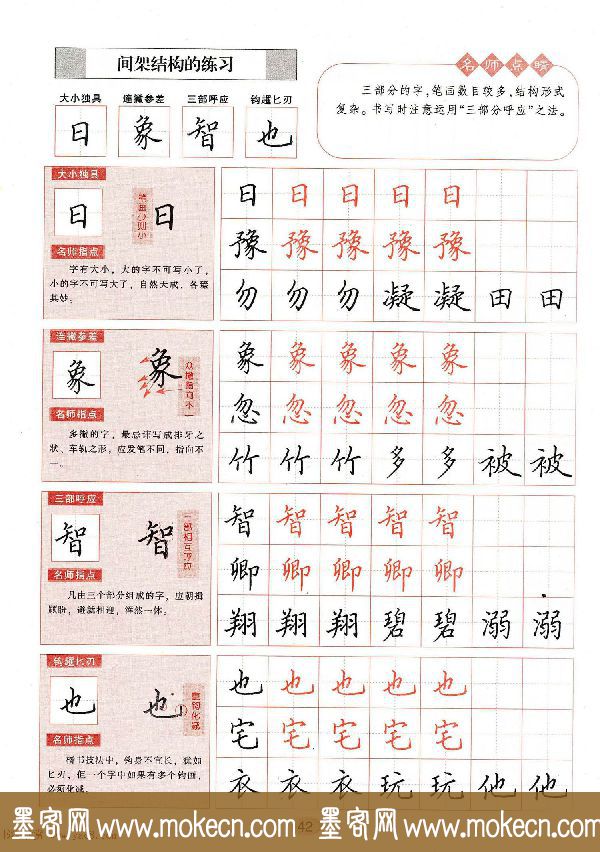 间架结构的练习
名师点睛
三部分的字，笔画数目较多，结构形式
复杂。书写时注意运用“三部分呼应”之法。
大小独具 连撇参差 三部呼应 钩趯匕刃
日 象 智 也
大小独具
日 日
笔画少则小
名师指点
字有大小，大的字不可写小了，
小的字不可写大了，自然天成，各臻
其妙。
日 日 日 日 日
豫 豫 豫 豫 豫
勿 勿 勿 凝 凝 田 田
连撇参差
象 象
众撇指向不一
名师指点
多撇的字，最忌讳写成排牙之
状、车轨之形，应发笔不同，指向不
一。
象 象 象 象 象
忽 忽 忽 忽 忽
竹 竹 竹 多 多 被 被
三部呼应
智 智
三部相互呼应
名师指点
凡由三个部分组成的字，应朝揖
顾盼，避就相迎，浑然一体。
智 智 智 智 智
卿 卿 卿 卿 卿
翔 翔 翔 碧 碧 溺 溺
钩趯匕刃
也 也
重钩化减
名师指点
楷书技法中，钩身不宜长，犹如
匕刃，但一个字中如果有多个钩画，
必须化减。
也 也 也 也 也
宅 宅 宅 宅 宅
衣 衣 衣 玩 玩 他 他
42
墨客网 www.mokecn.com 墨客网 www.mokecn.com